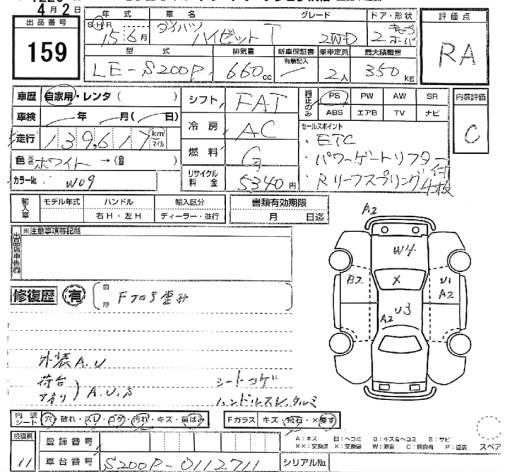 4月2日
出品番号
159
年式 車名 グレード ドア・形状
H 15年6月 ダイハツ ハイゼット T 2WD 2
評価点
RA
型式 排気量 新車保証書 乗車定員 最大積載量
LE-S200P 660cc 有無記入 2人 350kg
車歴 自家用・レンタ( )
車検 年 月( 日)
走行 139,617 km マイル
色 ホワイト →( )
カラーNo. W09
シフト FAT
冷房 AC
燃料 G
リサイクル料金 5340円
純正のみ PS PW AW SR
ABS エアB TV ナビ
セールスポイント
・ETC
・パワーゲートリフター付
・Rリーフスプリング4枚
内装評価
C
輸入車 モデル年式 ハンドル 輸入区分
右H・左H ディーラー・並行
書類有効期限
月 日迄
出品店申告欄
※注意事項等記載
修復歴 有 箇所 Fフロア歪み
外装A.U
荷台 アオリ)A.U.S
シートコゲ
ハンドルスレ
A2
W4
B2 X U1
A2
A2 U3
内装シート 穴・破れ・スレ・コゲ・汚れ・キズ・歯はみ
Fガラス キズ・飛石・X要す
登録番号
検査員 11
車台番号 S200P-0112711
シリアルNo.
A:キズ U:ヘコミ B:キズ&ヘコミ S:サビ
XX:交換済 X:交換要 W:波 C:腐食有 P:塗装
スペア